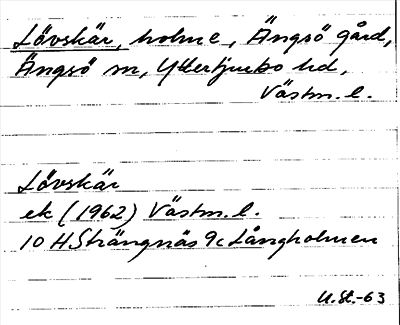 Lövskär, holme, Ängsö gård,
Ängsö sn, Yttertjurbo hd,
Västm. l.
Lövskär
ek (1962) Västm. l.
10 H Strängnäs 9c Långholmen
U.St.-63